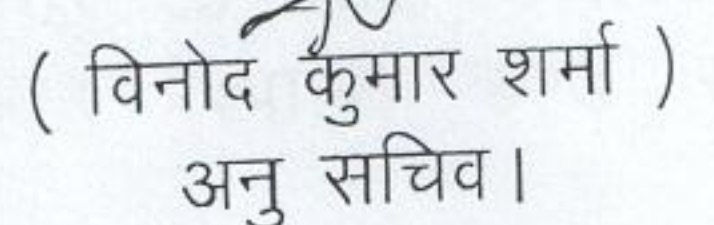 ( विनोद कुमार शर्मा )
अनु सचिव।